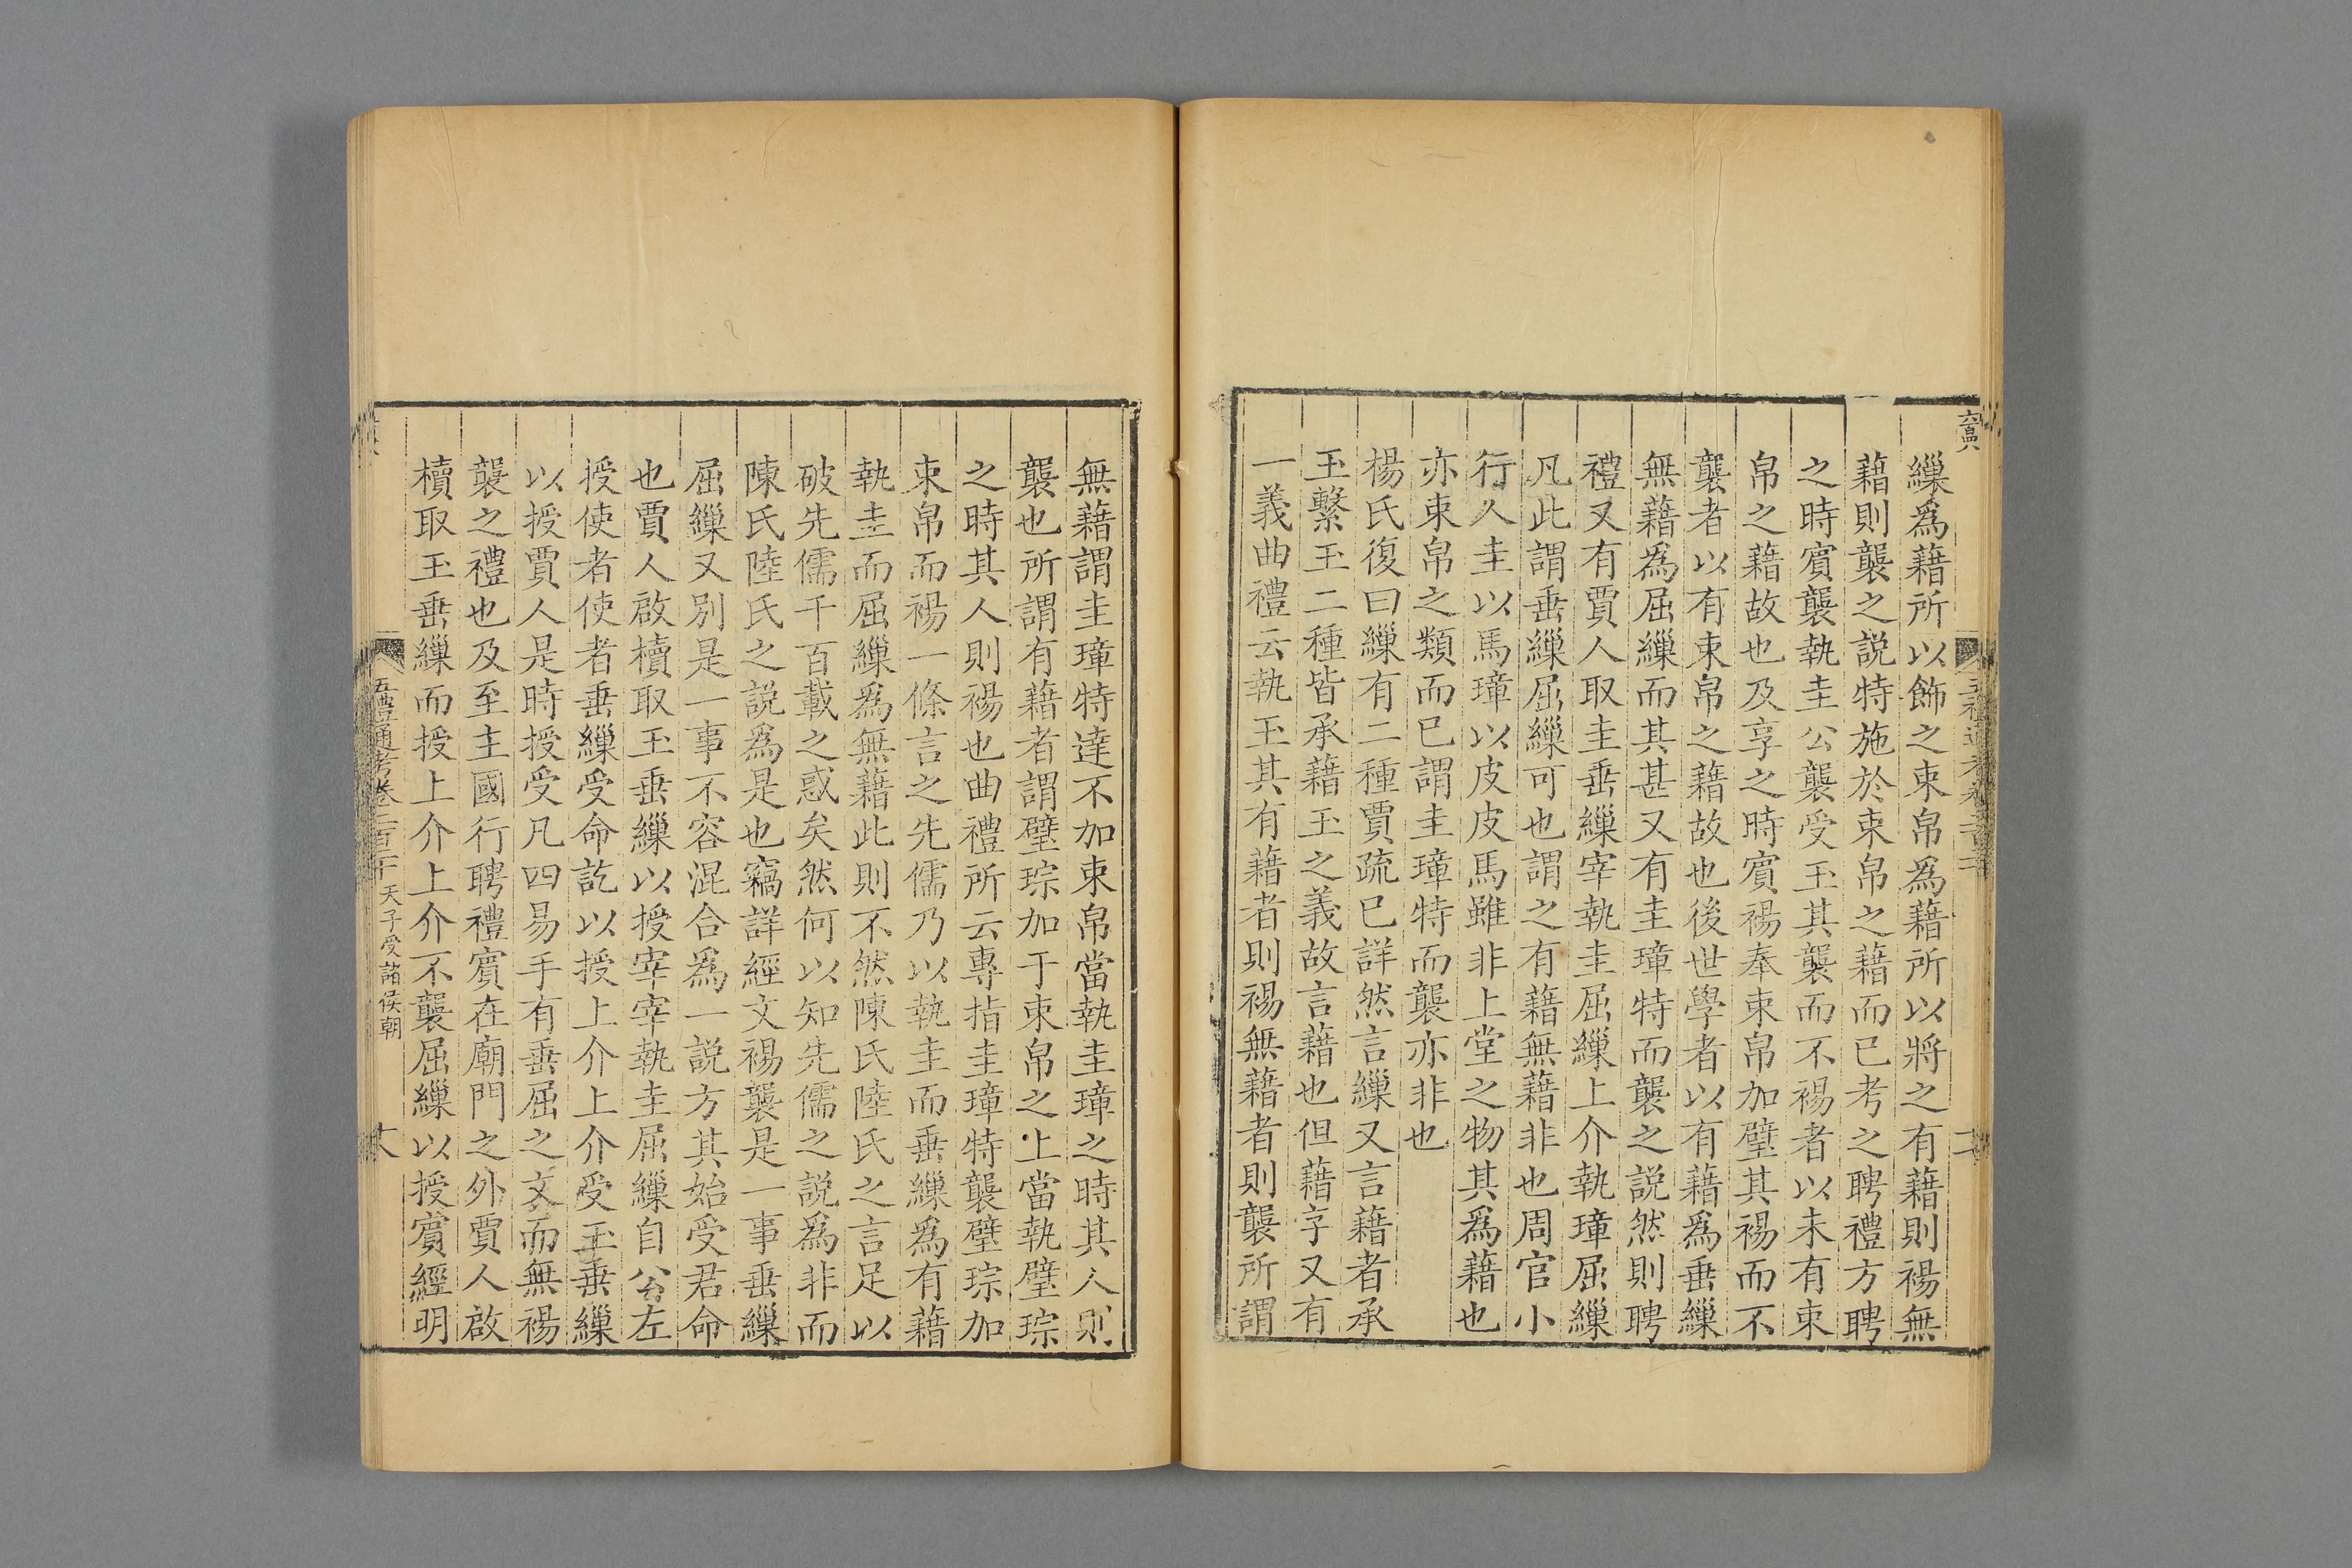 繅爲藉所以飾之束帛爲藉所以將之有藉則裼無
藉則襲之説特施於束帛之藉而已考之聘禮方聘
之時賓襲執圭公襲受玉其襲而不裼者以未有束
帛之藉故也及享之時賓裼奉束帛加璧其裼而不
襲者以有束帛之藉故也後世學者以有藉爲垂繅
無藉爲屈繅而其甚又有圭璋特而襲之説然則聘
禮又有賈人取圭垂繅宰執圭屈繅上介執璋屈繅
凡此謂垂繅屈繅可也謂之有藉無藉非也周官小
行人圭以馬璋以皮皮馬雖非上堂之物其爲藉也
亦束帛之類而已謂圭璋特而襲亦非也
楊氏復曰繅有二種賈疏已詳然言繅又言藉者承
玉繫玉二種皆承藉玉之義故言藉也但藉字又有
一義曲禮云執玉其有藉者則裼無藉者則襲所謂
無藉謂圭璋特達不加束帛當執圭璋之時其人則
襲也所謂有藉者謂璧琮加于束帛之上當執璧琮
之時其人則裼也曲禮所云專指圭璋特襲璧琮加
束帛而裼一條言之先儒乃以執圭而垂繅爲有藉
執圭而屈繅爲無藉此則不然陳氏陸氏之言足以
破先儒千百載之惑矣然何以知先儒之説爲非而
陳氏陸氏之説爲是也竊詳經文裼襲是一事垂繅
屈繅又别是一事不容混合爲一説方其始受君命
也賈人啟櫝取玉垂繅以授宰宰執圭屈繅自公左
授使者使者垂繅受命訖以授上介上介受玉垂繅
以授賈人是時授受凡四易手有垂屈之文而無裼
襲之禮也及至主國行聘禮賓在廟門之外賈人啟
櫝取玉垂繅而授上介上介不襲屈繅以授賓經明
五禮通考卷二百二十 天子受諸侯朝